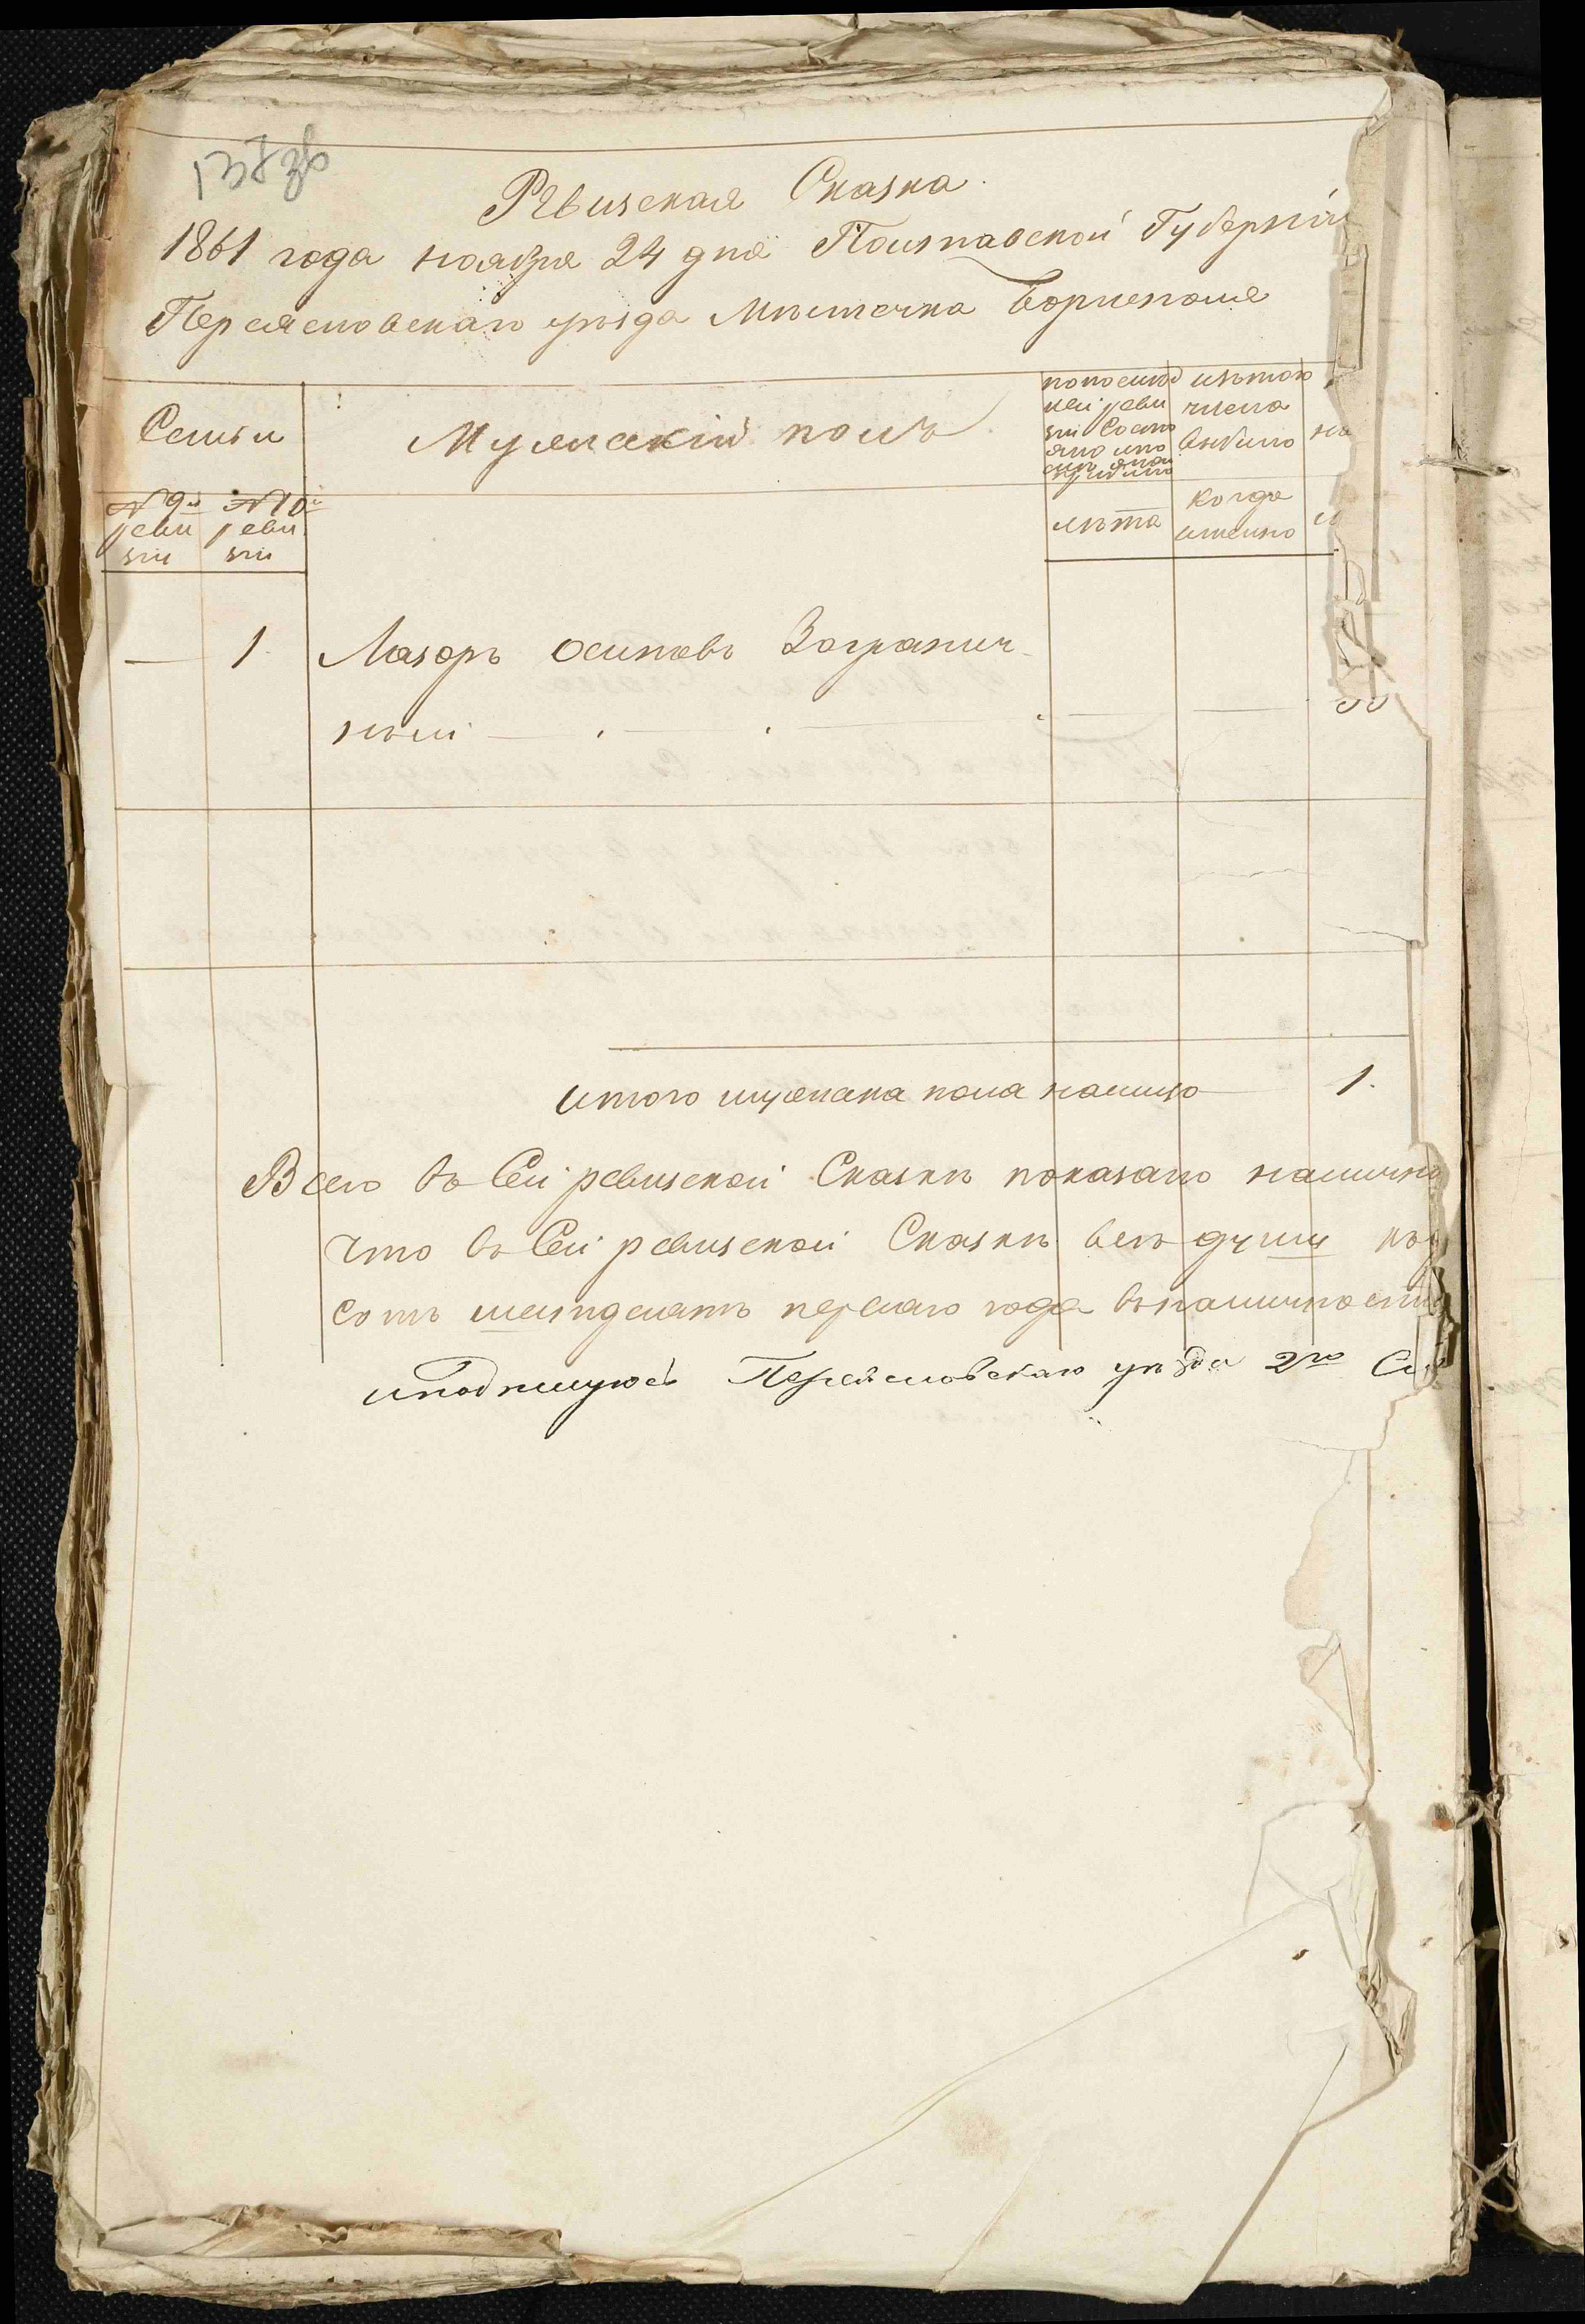 138 зв
Ревизская Сказка.
1861 года ноября 24 дня Полтавской Губерніи
Переясловскаго уѣзда Мѣстечка Борисполя
Семьи
Мужескій полъ
по послѣд
ней реви
зіи Состо
яло или
изъ того
числа
выбыло
№ 9й
реви
зіи
№ 10й
реви
зіи
лѣта
когда
именно
— 1. Лазорь Осиповъ Загранич-
ный — — — —
итого мужеска пола налицо 1.
Всего въ Сей ревизской Сказкѣ показано налично
что въ Сей ревизской Сказкѣ всѣ души
сотъ шестдесятъ перваго года въ наличности
и подпишуюсь Переясловскаго уѣзда 2го